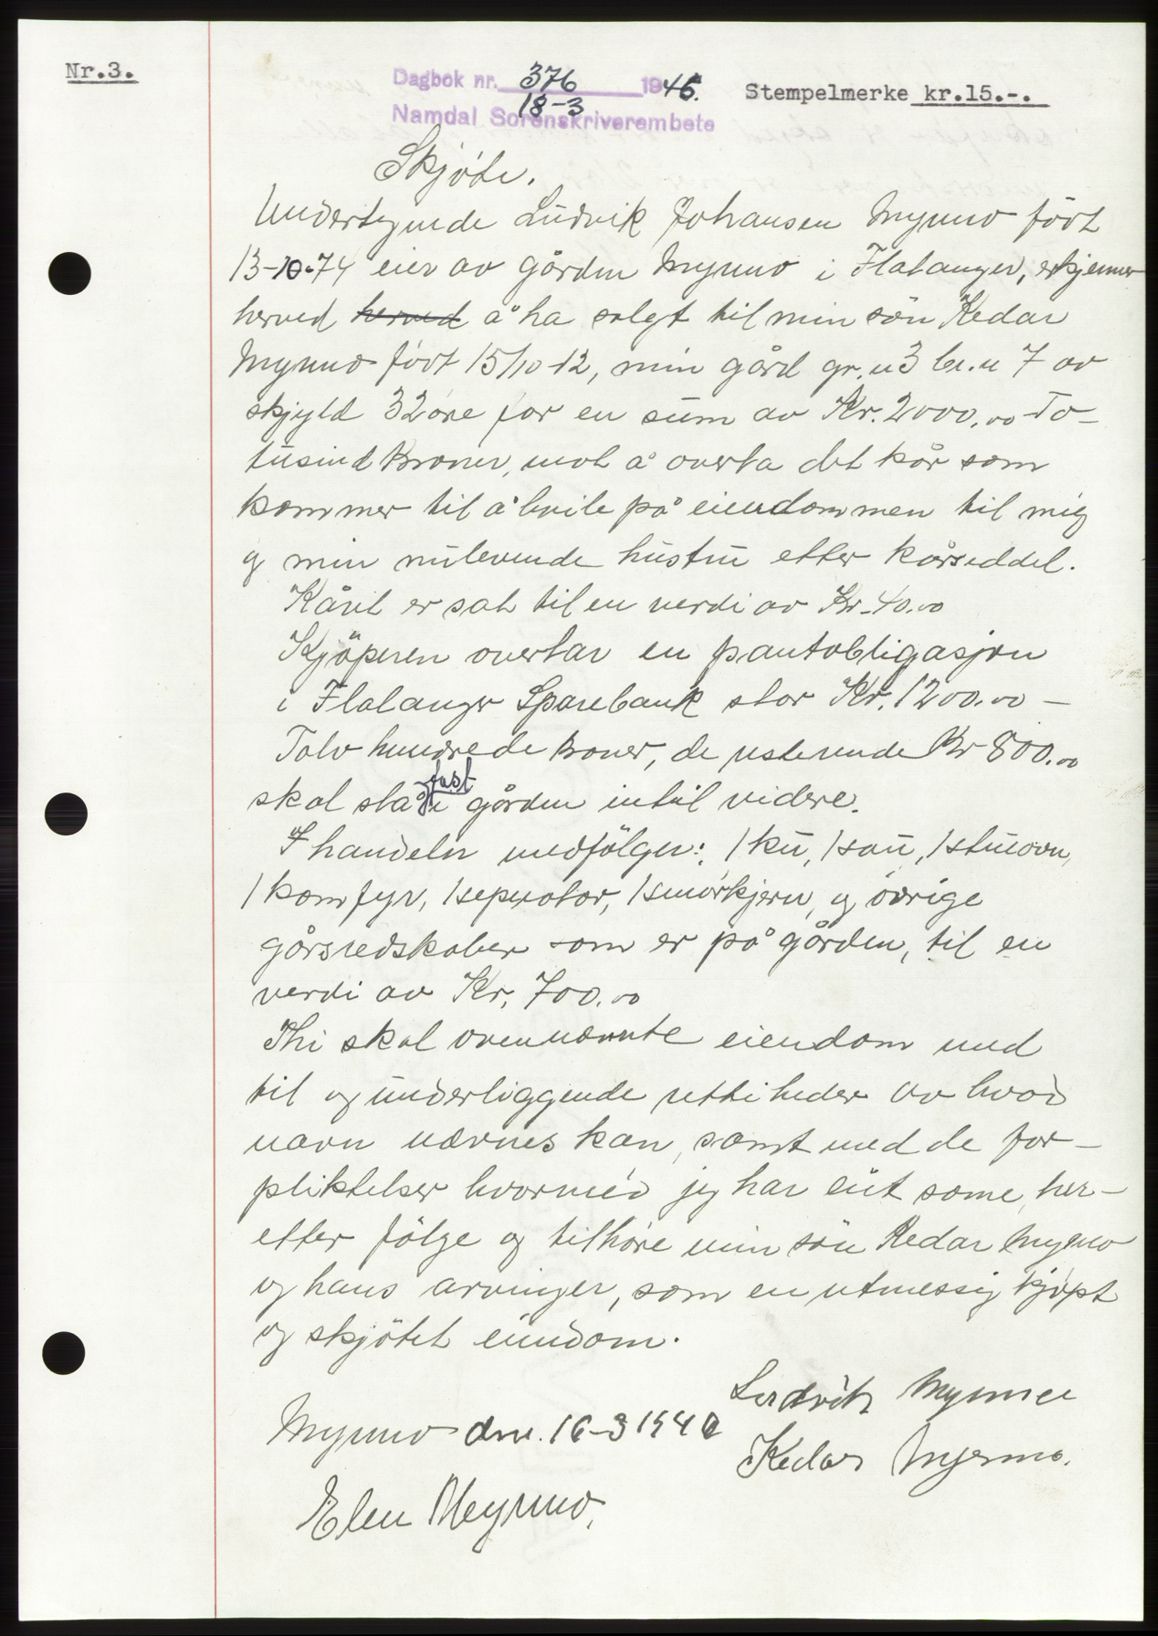 Nr.3.
Dagbok nr. 376 1946.
18-3
Namdal Sorenskriverembete
Stempelmerke kr.15.-.
Skjöte.
Undertegnede Ludvik Johansen Myrmo född
13-10-74 eier av gården Myrmo i Flatanger, erkjenner
herved herved å ha solgt til min sön Kedar
Myrmo född 15/10-12, min gård gr.n 3 br.n 7 av
skjyld 32 öre for en sum av Kr. 2000.00 To-
tusind kroner, mot å overta det kår som
kommer til å hvile på eiendommen til mig
og min nulevende hustru etter kårseddel.
Kåret er sat til en verdi av Kr. 40.00
Kjöperen overtar en pantobligasjon
i Flatanger Sparebank stor Kr. 1200.00 -
Tolv hundrede kroner, de resterende Kr 800.00
skal stå fast i gården intil videre.
I handelen medfölger: 1 ku, 1 sau, 1 stueovn,
1 komfyr, 1 seperator, 1 smörkjern, og övrige
gårsredskaber som er på gården, til en
verdi av Kr. 700.00
Thi skal ovennevnte eiendom med
til og underliggende rettiheder av hvad
navn nevnes kan, samt med de for-
pliktelser hvormed jeg har eiet same, her-
etter fölge og tilhöre min sön Kedar Myrmo
og hans arvinger, som en retmessig kjöpt
og skjötet eiendom.
Ludvik Myrmo
Myrmo den. 16-3 1946
Kedar Myrmo.
Elen Myrmo.